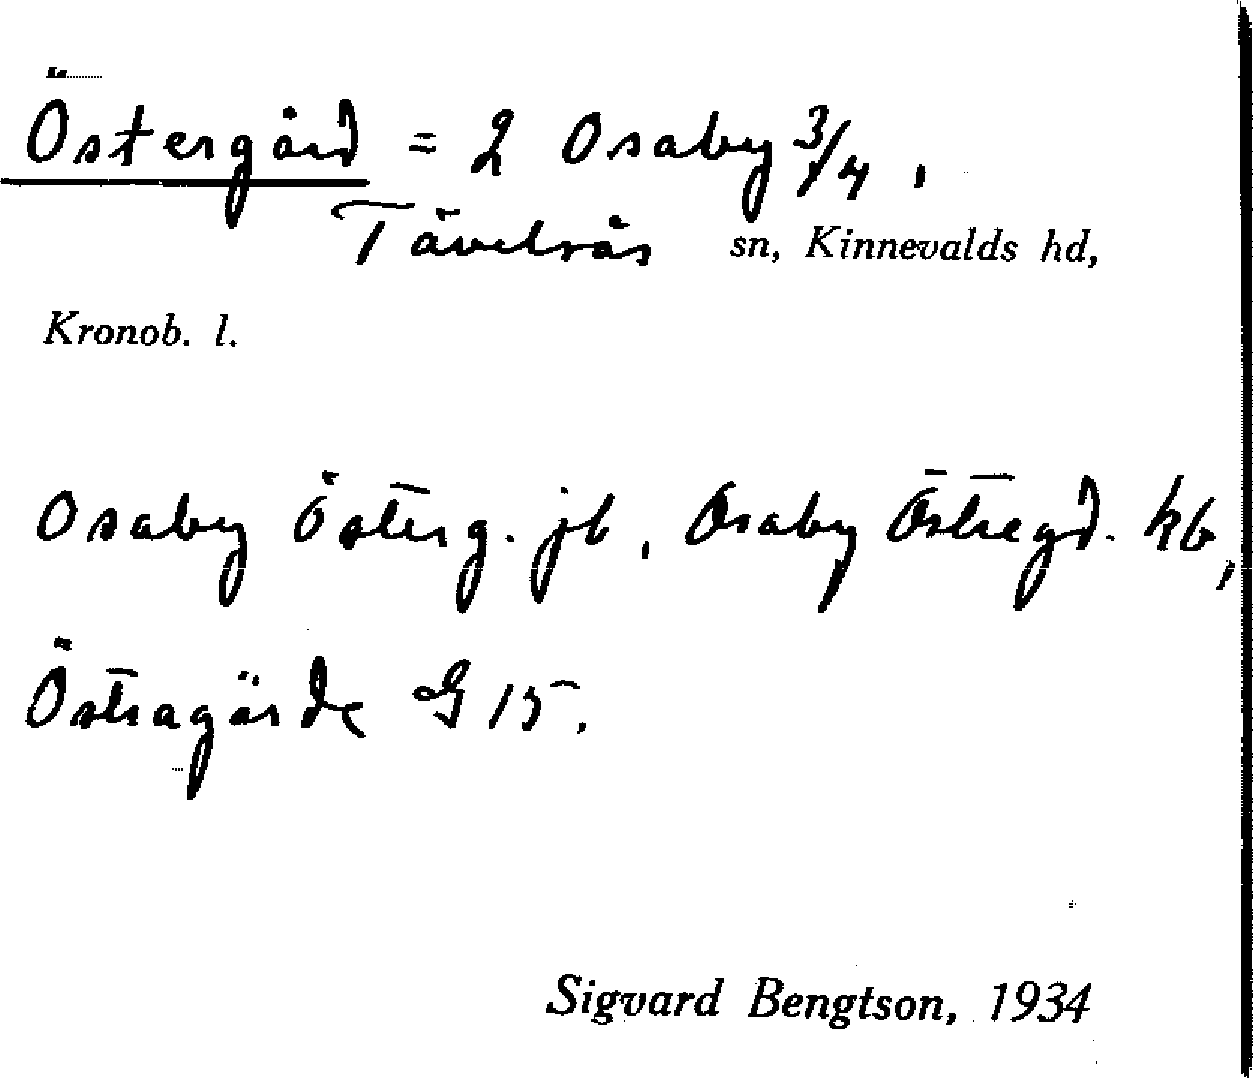 Östergård = 2 Osaby 3/4,
Tävelsås sn, Kinnevalds hd,
Kronob. l.
Osaby Österg. jb, Osaby Östregd. kb,
Östragärde G 15.
Sigvard Bengtson, 1934